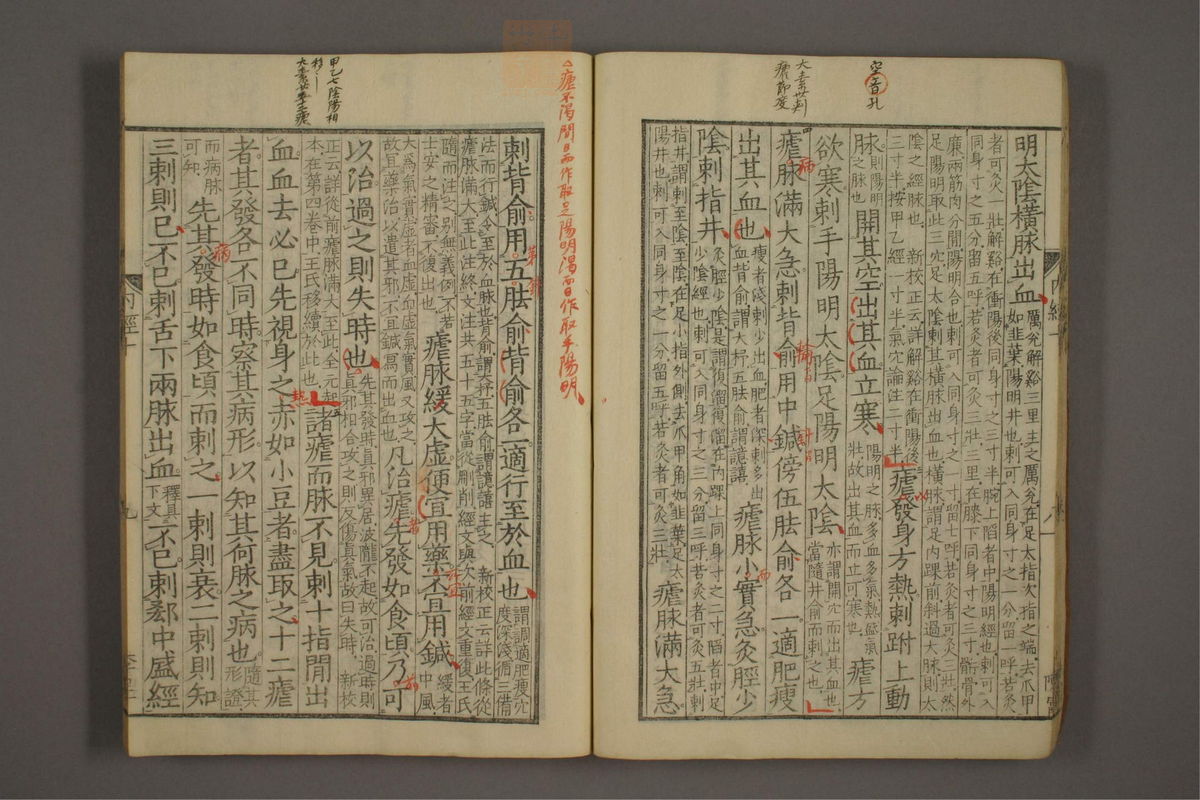 空音孔
大素卄五刺
瘧節度
明太陰橫脉出血
厲兊解谿三里主之厲兊在足大指次指之端去爪甲
如韭葉陽明井也刺可入同身寸之一分留一呼若灸
者可灸一壯解谿在衝陽後同身寸之三寸半腕上陷者中陽明經也刺可入
同身寸之五分留五呼若灸者可灸三壯三里在膝下同身寸之三寸䯒骨外
廉兩筋肉分間陽明合也刺可入同身寸之一寸留七呼若灸者可灸三壯然
足陽明取此三穴足太陰刺其橫脉出血也橫脉謂足內踝前斜過大脉則太
陰之經脉也 新校正云詳解谿在衝陽後
三寸半按甲乙經一寸半氣穴論注二寸半
瘧發身方熱刺跗上動
脉
則陽明
之脉也
開其空出其血立寒
陽明之脉多血多氣熱盛氣
壯故出其血而立可寒也
瘧方
欲寒刺手陽明太陰足陽明太陰
亦謂開穴而出其血也
當隨井俞而刺之也
瘧脉滿大急刺背俞用中鍼傍伍胠俞各一適肥瘦
出其血也
瘦者淺刺少出血肥者深刺多出
血背俞謂大杼五胠俞謂譩譆
瘧脉小實急灸脛少
陰刺指井
灸脛少陰是謂復溜復溜在內踝上同身寸之二寸陷者中足
少陰經也刺可入同身寸之三分留三呼若灸者可灸五壯刺
指井謂刺至陰至陰在足小指外側去爪甲角如韭葉足太
陽井也刺可入同身寸之一分留五呼若灸者可灸三壯
瘧脉滿大急
內經十
瘧不渴間日而作取足陽明渴而日作取手陽明
甲乙七陰陽相
刺背俞用五胠俞背俞各一適行至於血也
謂調適肥瘦穴
度深淺循三備
法而行鍼令至於血脉也背俞謂大杼五胠俞謂譩譆主之 新校正云詳此條從
瘧脉滿大至此注終文注共五十五字當從刪削經文與次前經文重復王氏
隨而注之別無義例不若
士安之精審不復出也
瘧脉緩大虛便宜用藥不宜用鍼
緩者
中風
大爲氣實虛者血虛血虛氣實風又攻之
故宜藥治以遣其邪不宜鍼寫而出血也
凡治瘧先發如食頃乃可
以治過之則失時也
先其發時真邪異居波隴不起故可治過時則
真邪相合攻之則反傷真氣故曰失時 新校
正云詳從前瘧脉滿大至此全元起
本在第四卷中王氏移續於此也
諸瘧而脉不見刺十指間出
血血去必已先視身之赤如小豆者盡取之十二瘧
者其發各不同時察其病形以知其何脉之病也
隨其
形證
而病脉
可知
先其發時如食頃而刺之一刺則衰二刺則知
三刺則已不已刺舌下兩脉出血
釋具
下文
不已刺郄中盛經